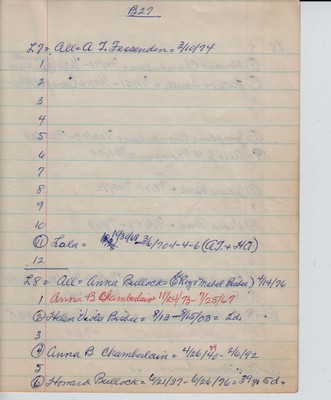 B27
L7 = All = A T. Fessenden = 2/10/74
1
2
3
4
5
6
7
8
9
10
⑪ Lola = 3/6/70-1-4-6 (AT. + HA)
12
L8 = All = Anna Bullock = Mabel 4/14/76
1 Anna B Chamberlain 11/24/73 - 7/25/67
② Helen Viola = 9/13 - 9/15/03 = 2ds
3
④ Anna B Chamberlain = 4/26/ - 2/6/92
5
⑥ Howard Bullock = 6/21/37 - 6/26/76 = 39 yr 5d =